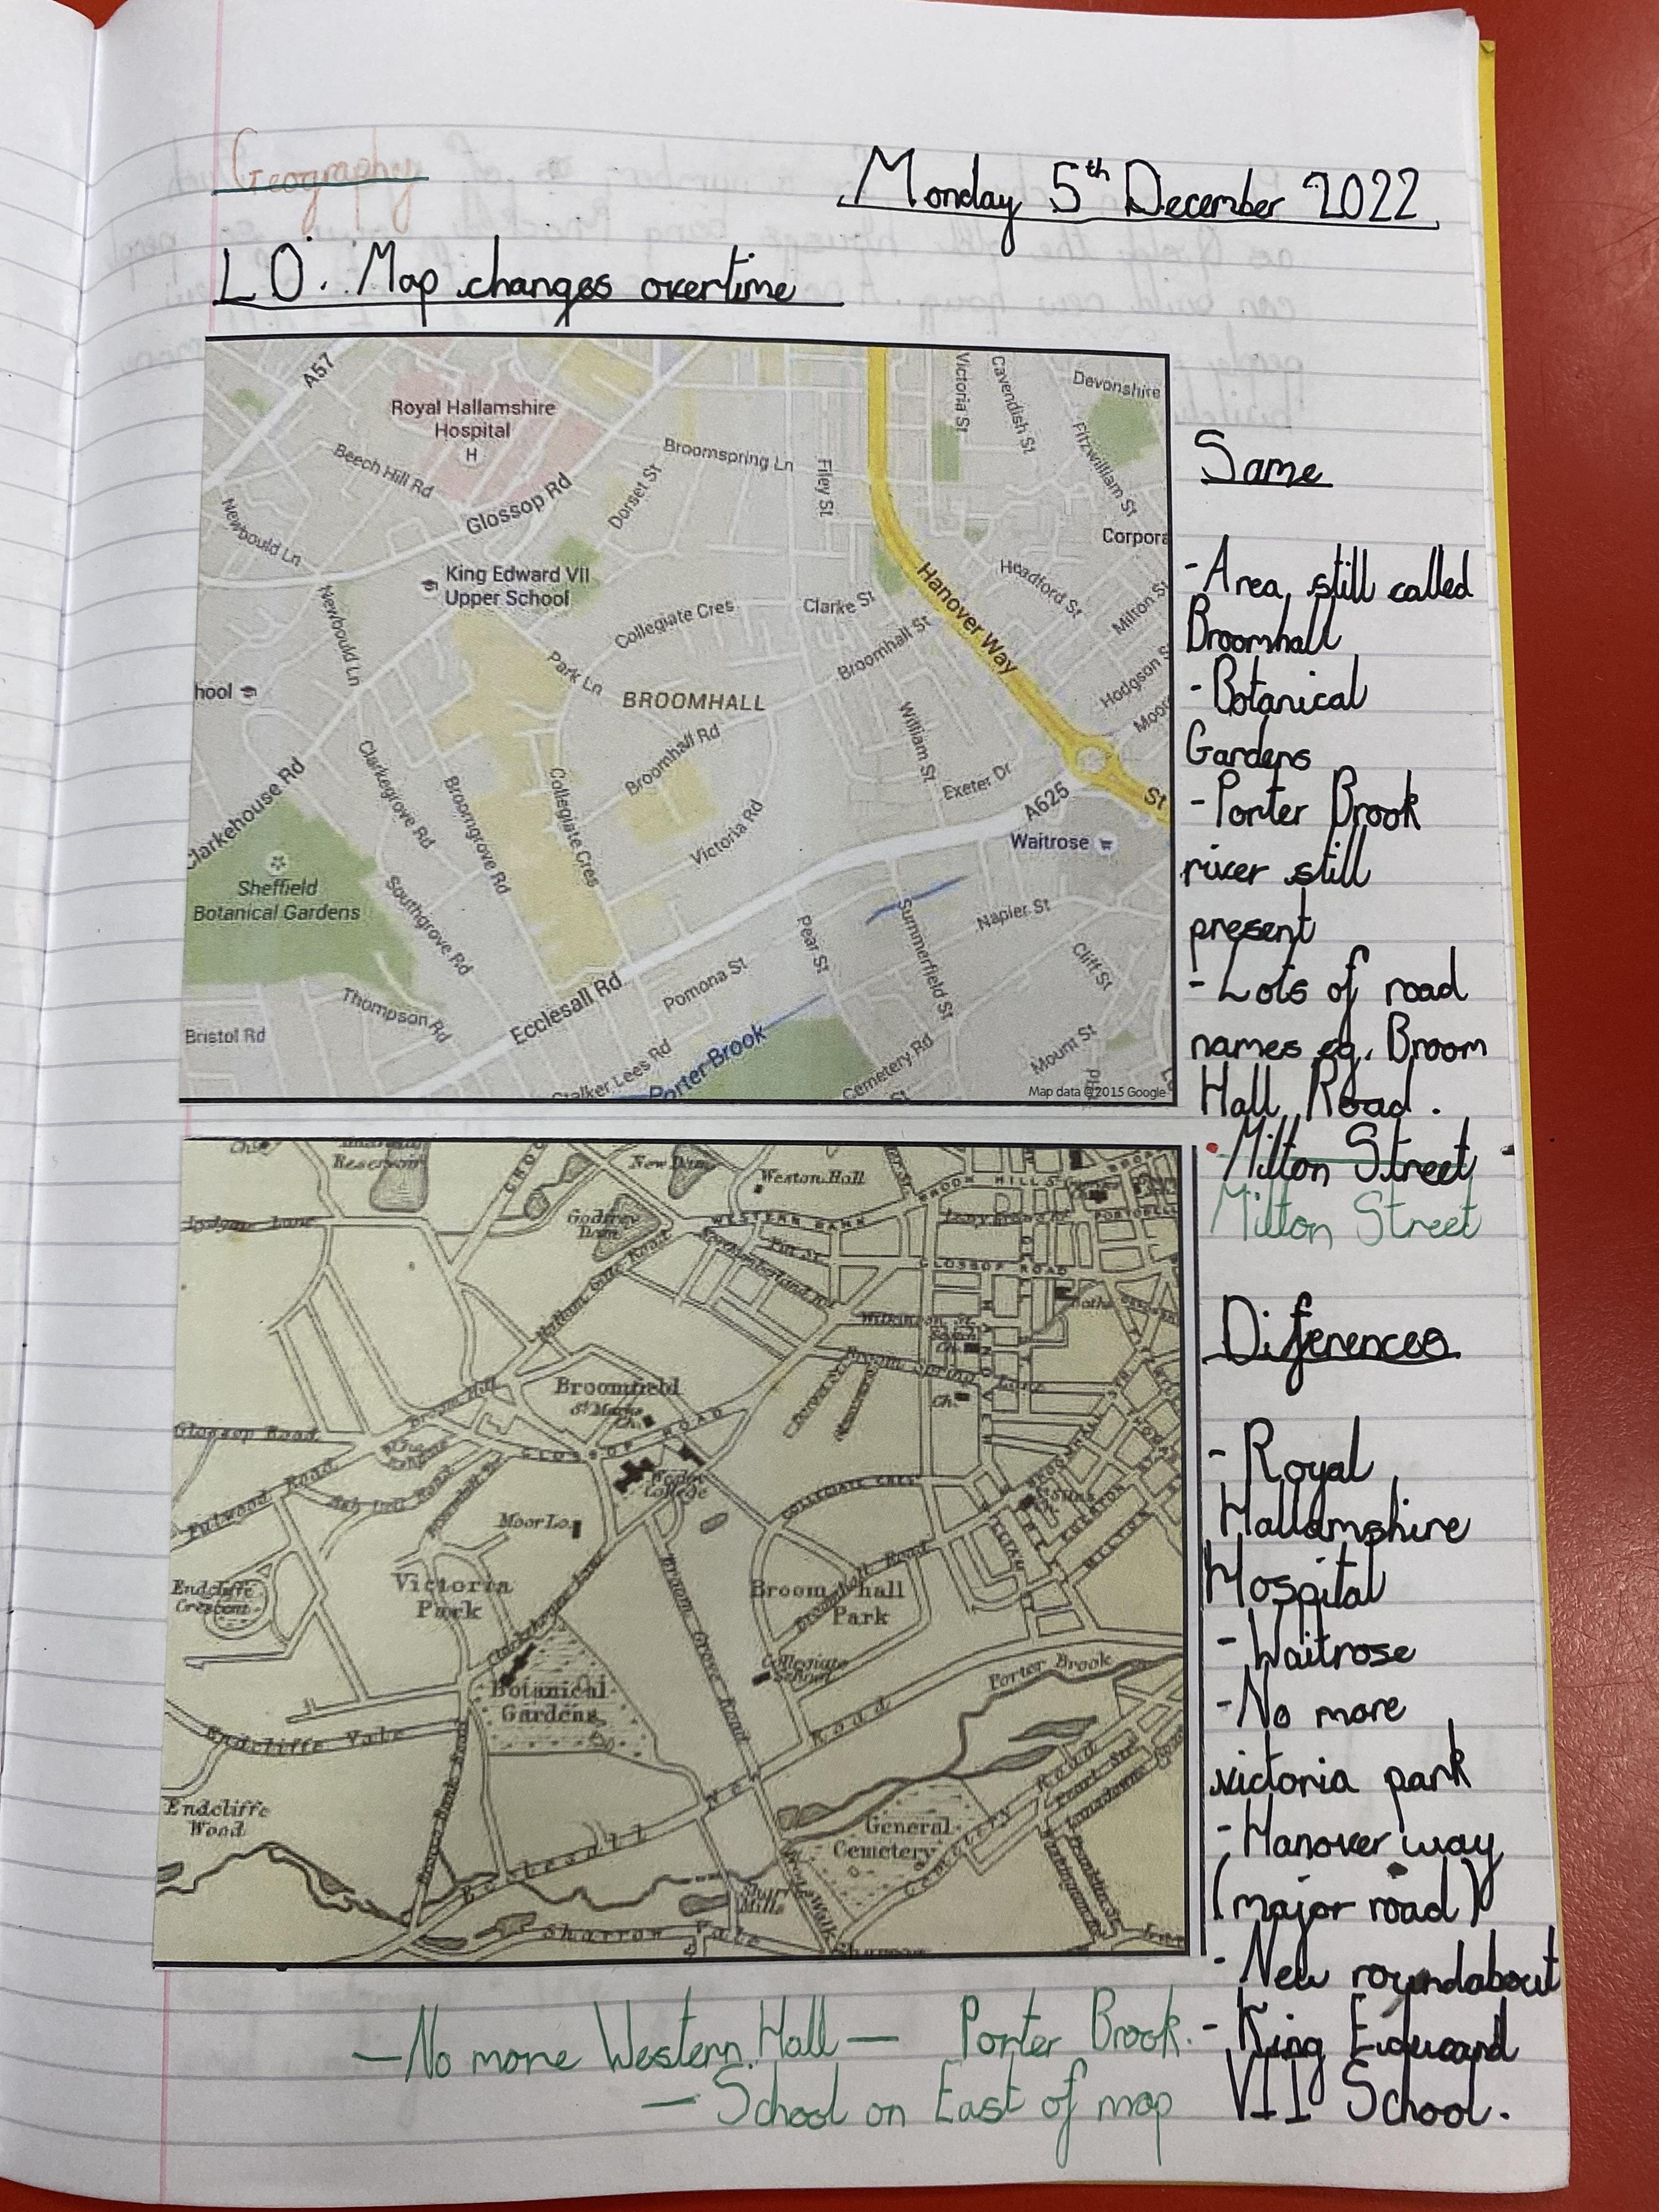 Geography
Monday 5th December 2022
L.O: Map changes overtime
A57
Royal Hallamshire
Hospital
H
Beech Hill Rd
Glossop Rd
Newbould Ln
Dorset St
Broomspring Ln
Filey St
Victoria St
Cavendish St
Devonshire
Fitzwilliam St
Corpora
King Edward VII
Upper School
Newbould Ln
Collegiate Cres
Clarke St
Hanover Way
Headford St
Milton St
Hodgson S
Moor
hool
Park Ln
BROOMHALL
Broomhall St
Broomhall Rd
William St
Exeter Dr
A625
St
Clarkehouse Rd
Clarkegrove Rd
Broomgrove Rd
Collegiate Cres
Victoria Rd
Waitrose
Sheffield
Botanical Gardens
Southgrove Rd
Pear St
Summerfield St
Napier St
Cliff St
Thompson Rd
Bristol Rd
Ecclesall Rd
Pomona St
Stalker Lees Rd
Porter Brook
Cemetery Rd
St
Mount St
Map data ©2015 Google
Same
- Area still called
Broomhall
- Botanical
Gardens
- Porter Brook
river still
present
- Lots of road
names eg. Broom
Hall Road.
Milton Street
Milton Street
Reservoir
New Dam
Weston Hall
Godfrey
Dam
WESTERN BANK
BROOM HILL
PORTOBELLO
Lydgate Lane
Northumberland Rd
GLOSSOP ROAD
Wilkinson St.
Broom Spring Lane
Ch.
Broomfield
St Marks
Ch.
Broom Hill
Glossop Road
GLOSSOP ROAD
Wesley
College
Fulwood Road
Ash Dell Road
Moor Lo.
COLLEGIATE CRES
BROOMHALL
EGERTON
MILTON
Endcliffe
Crescent
Victoria
Park
Clarkehouse Lane
Broom Grove Road
Broom hall
Park
Broomhall Road
Collegiate
School
Botanical
Gardens
Porter Brook
Endcliffe Vale
Endcliffe
Wood
Ecclesall New Road
General
Cemetery
Cemetery Road
Mills
Sharrow Vale
Differences
- Royal
Hallamshire
Hospital
- Waitrose
- No more
victoria park
- Hanover way
(major road)
- New roundabout
- King Edward
VII School.
— No more Western Hall — Porter Brook.
— School on East of map